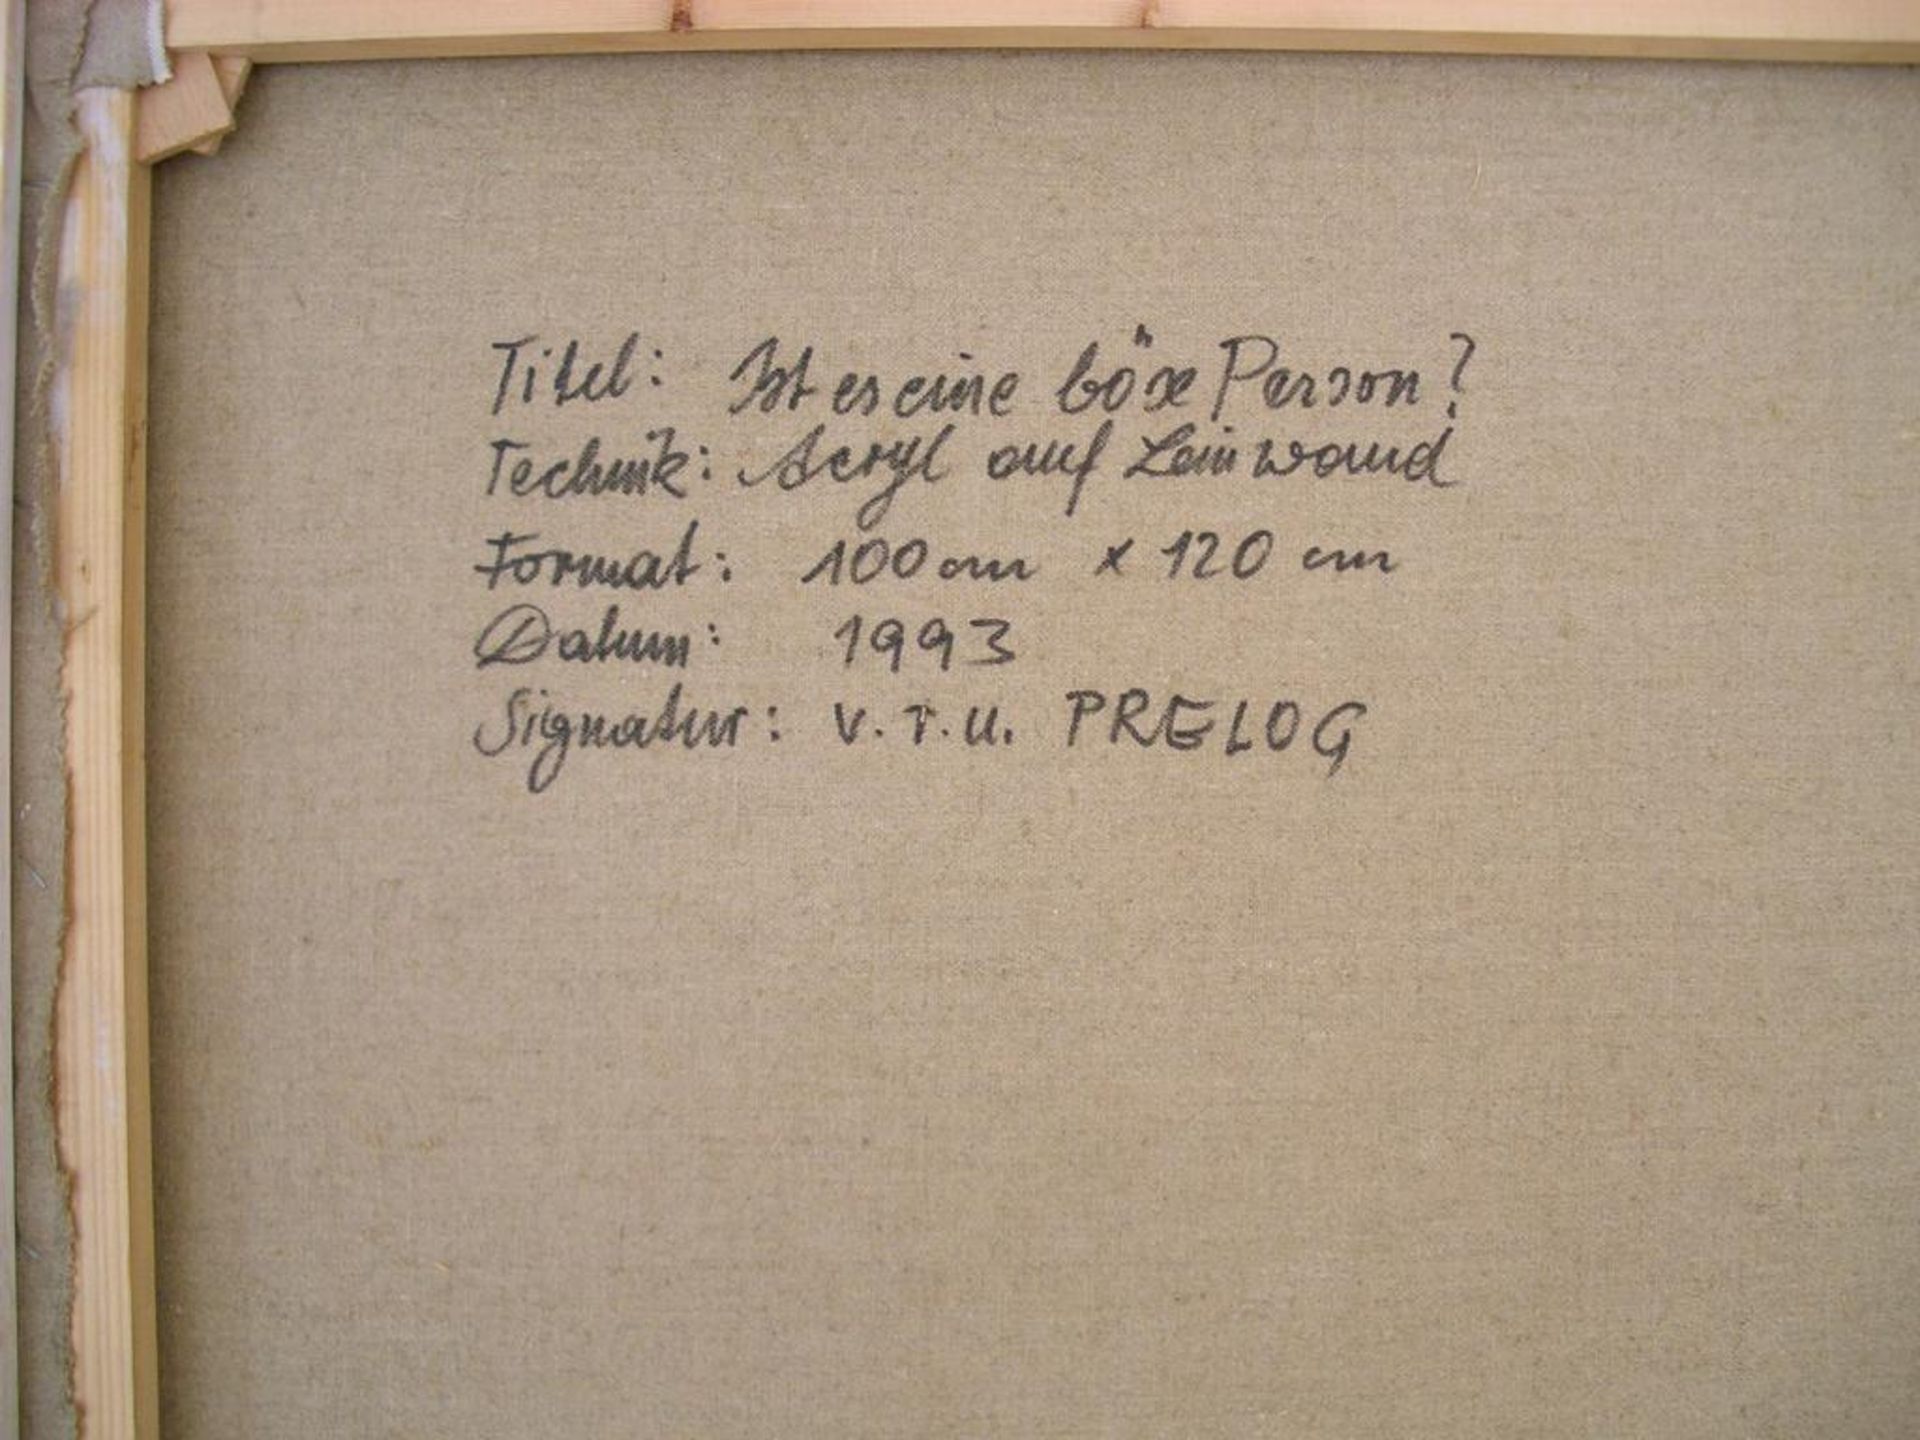 Titel: Ist es eine böse Person?
Technik: Acryl auf Leinwand
Format: 100 cm x 120 cm
Datum: 1993
Signatur: V. T. U. PRELOG